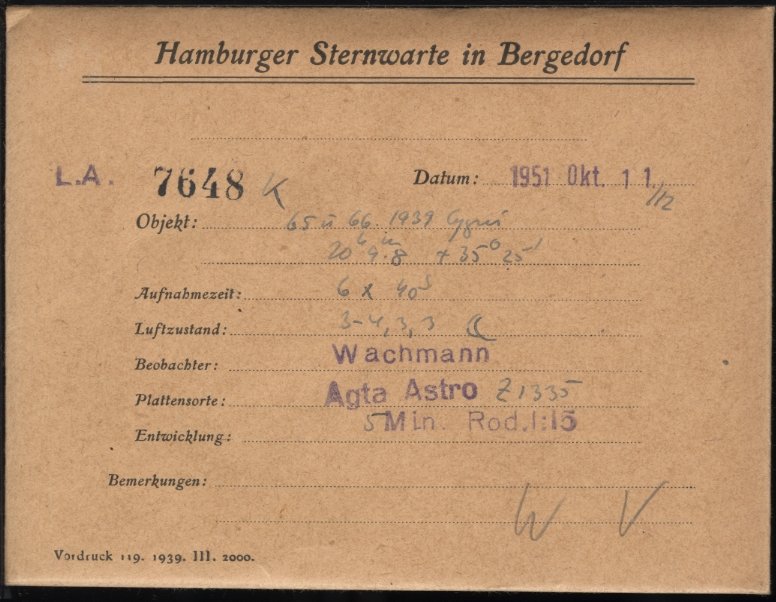 Hamburger Sternwarte in Bergedorf
L.A. 7648 K Datum: 1951 Okt. 11./12
Objekt: 65 u 66 1939 Cygni
20h 9m.8 + 35° 25'
Aufnahmezeit: 6 x 40s
Luftzustand: 3-4, 3, 3
Beobachter: Wachmann
Plattensorte: Agfa Astro Z1335
Entwicklung: 5 Min. Rod. 1:15
Bemerkungen:
W V
Vordruck 119. 1939. III. 2000.